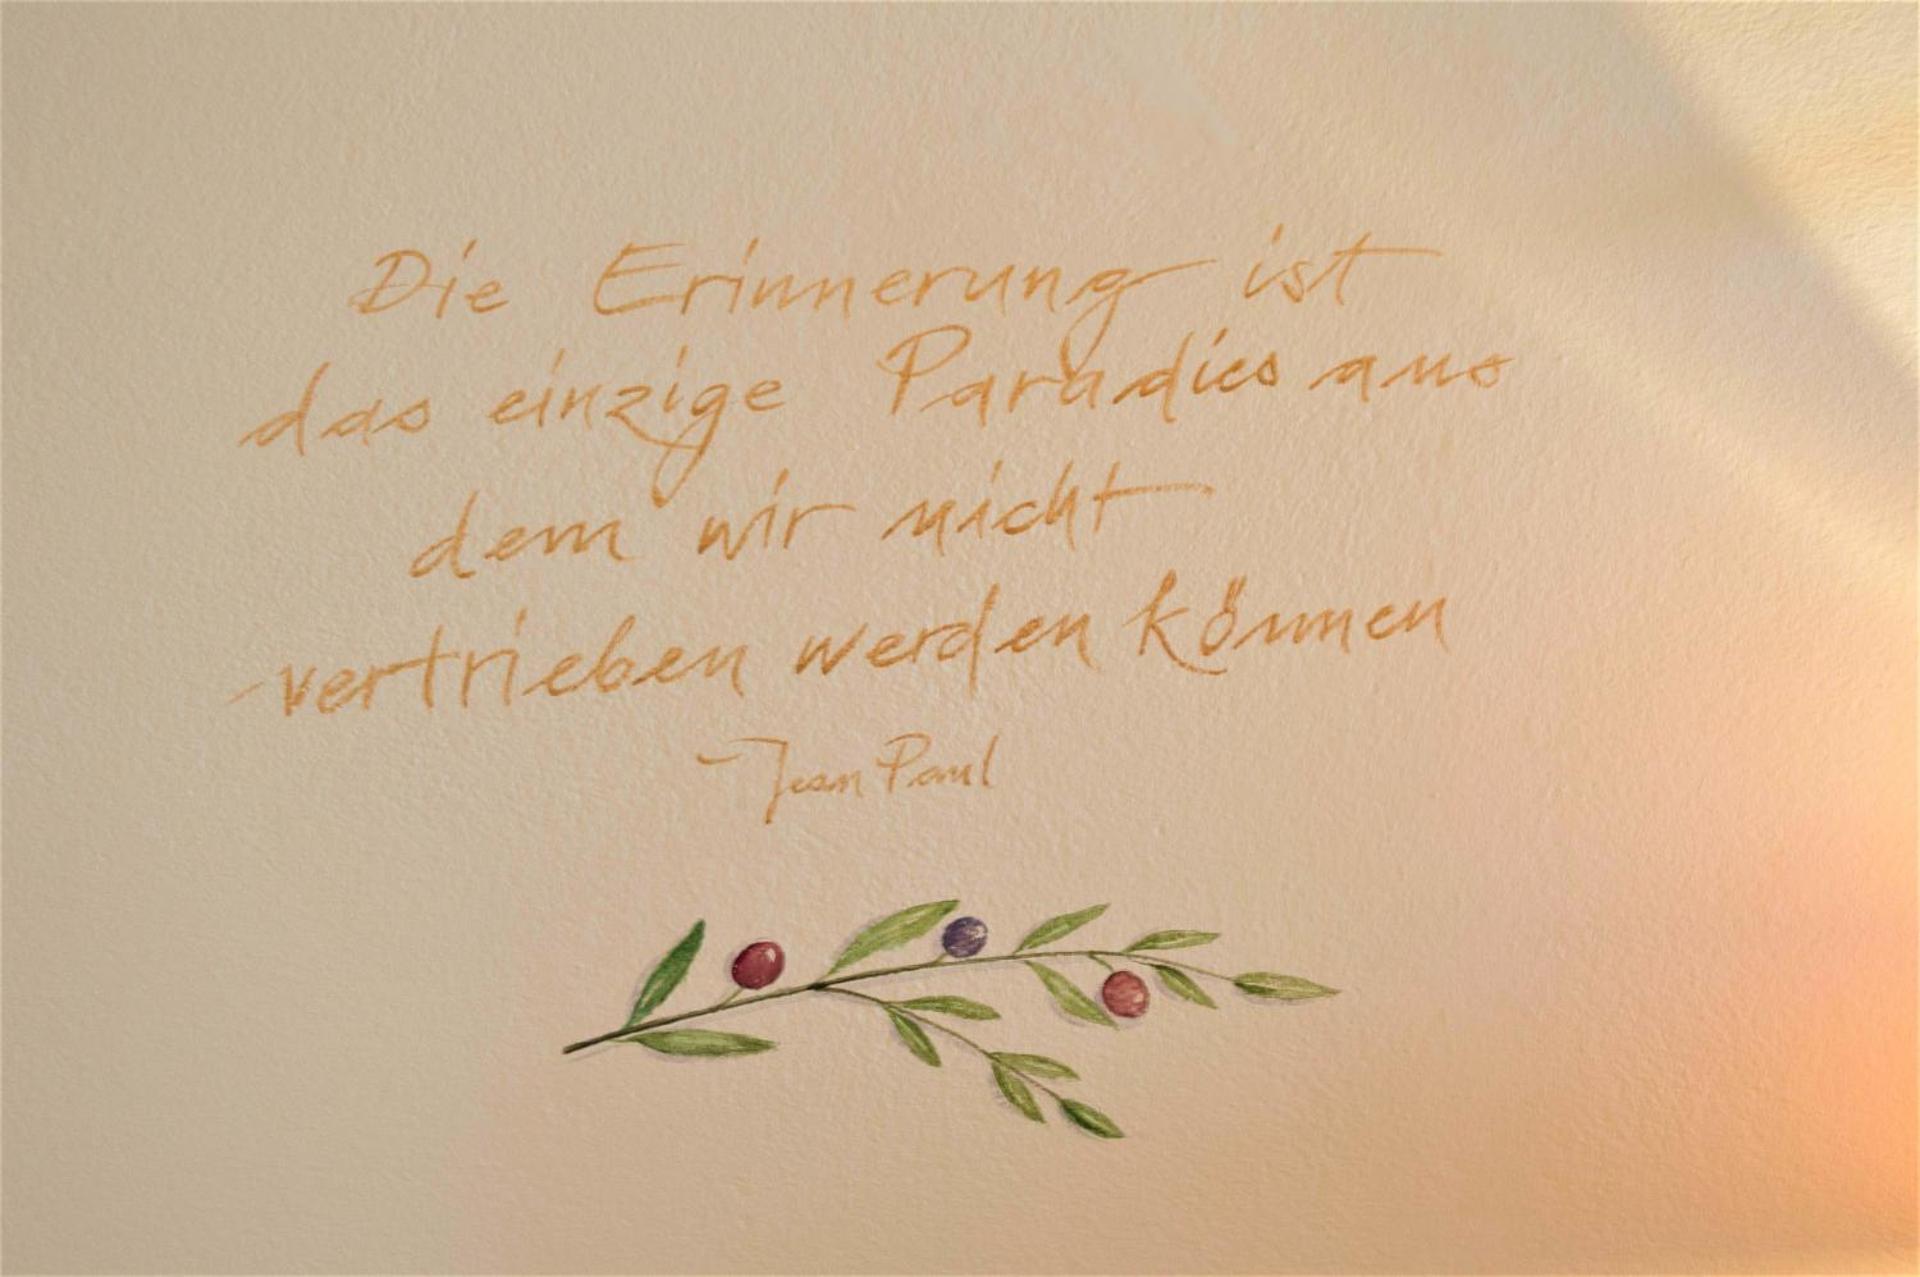 Die Erinnerung ist
das einzige Paradies aus
dem wir nicht
vertrieben werden können
- Jean Paul